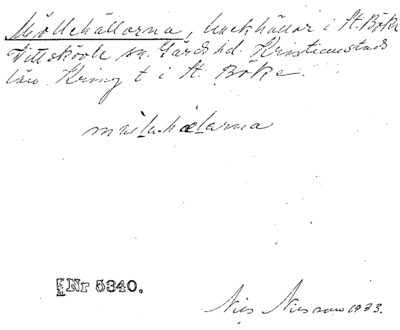 Möllehällorna, backhällor i St. Böke
Vittskövle sn. Gärds hd. Kristianstads
län. Kring t i St. Böke.
mnilahælarna
Nr 5340.
Nils Nilsson 1933.